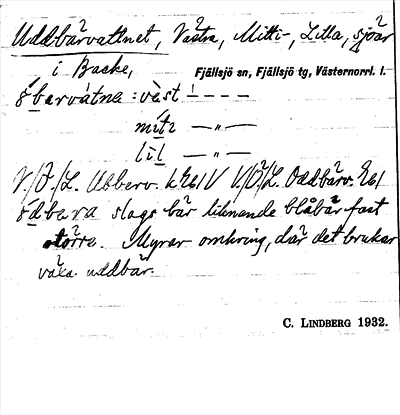 Uddbärvattnet, Västra, Mitti-, Lilla, sjöar
i Backe,
Fjällsjö sn, Fjällsjö tg, Västernorrl. l.
öbarvátna : vèst ! - - - -
mìti —„—
lìl —„—
V./Ö./L. Ubberv. LE61V V./Ö/L. Oddbärv. E61
ödbera slags bär liknande blåbär fast
större. Myrar omkring, där det brukar
växa uddbär.
C. LINDBERG 1932.